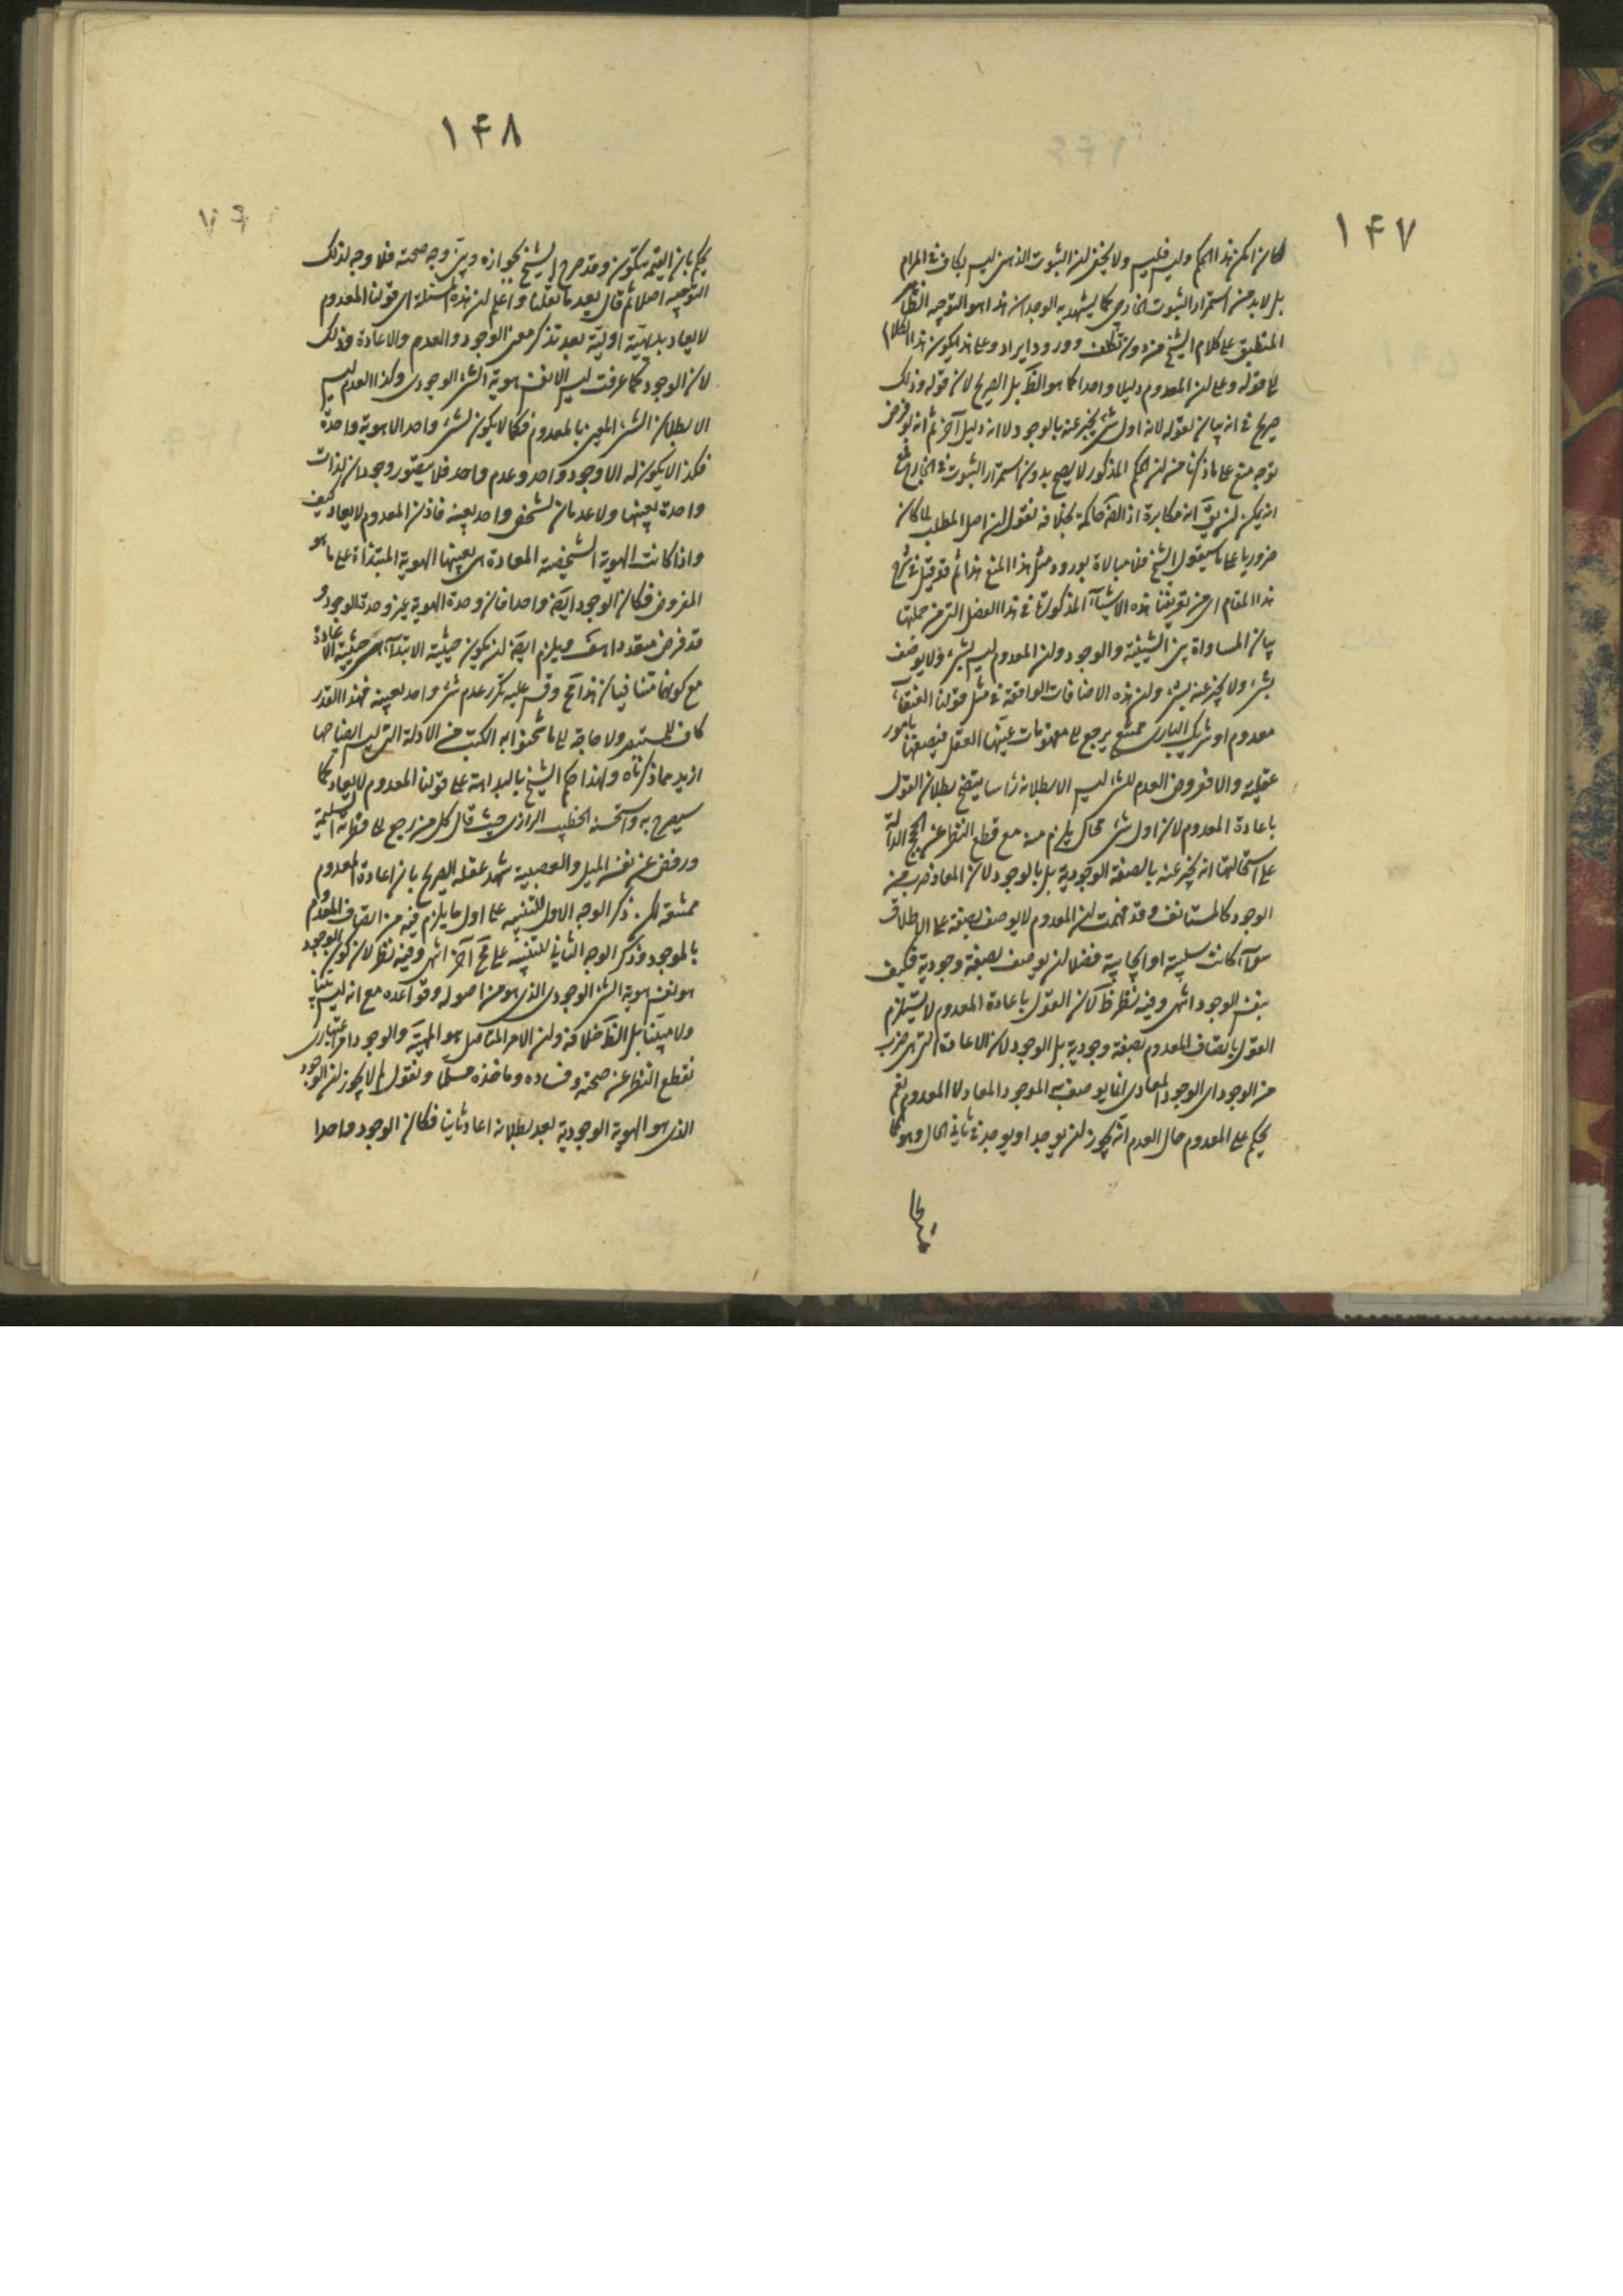 ١۴٧
لكان امكن هذا الحكم وليس فليس ولا يخفى ان الثبوت الذهنى ليس بكاف فى المرام
بل لا بد من استمرار الثبوت الخارجى كما يشهد به الوجدان هذا هو التوجيه الظاهر
المنطبق على كلام الشيخ من دون تكلف وورود ايراد وعلى هذا يكون هذا الكلام
الى قوله وعلى ان المعدوم دليلا واحدا كما هو الظ بل الصريح لان قوله وذلك
صريح فى انه بيان لقوله لانه اول شئ يخبر عنه بالوجود لا انه دليل آخر ثم انه لو فرض
توجه منع على ما ذكرنا من ان الحكم المذكور لا يصح بدون استمرار الثبوت فى الخارج مع
انه يمكن ان يق انه مكابرة اذ الضرورة حاكمة بخلافه نقول ان اصل المطلب لما كان
ضروريا على ما سيقول الشيخ فلا مبالاة بورود مثل هذا المنع هذا ثم قد قيل فى شرح
هذا المقام اى من تعريفنا هذه الاشياء المذكورة فى هذا الفصل التى من جملتها
بيان المساواة بين الشيئية والوجود وان المعدوم ليس بشئ ولا يوصف
بشئ ولا يخبر عنه بشئ وان هذه الاضافات الواقعة فى مثل قولنا العنقاء
معدوم او شريك البارى ممتنع يرجع الى مفهومات عينها العقل فيصفها بامور
عقلية والا فمفروض العدم للشئ ليس الا بطلانه رأسا يتضح بطلان القول
باعادة المعدوم لان اول شئ محال يلزم منه مع قطع النظر عن الحجج الدالة
على استحالتها انه يخبر عنه بالصفة الوجودية بل بالوجود لان المعاد ضرب من
الوجود كالمستانف وقد فهمت ان المعدوم لا يوصف بصفة على الاطلاق
سواء كانت سلبية او ايجابية فضلا ان يوصف بصفة وجودية فكيف
بنفس الوجود انتهى وفيه نظر ظ لان القول باعادة المعدوم لا يستلزم
القول باتصاف المعدوم بصفة وجودية بل الوجود لان الاعادة التى هى ضرب
من الوجود اى الوجود المعادى انما يوصف به الموجود المعاد لا المعدوم نعم
يحكم على المعدوم حال العدم انه يجوز ان يوجد او يوجد فى ثانى الحال وهو كما
١۴٨
يحكم بان القيمة ستكون وقد صرح الشيخ بجوازه وبين وجه صحته فلا وجه لذلك
التوجيه اصلا ثم قال بعد ما نقلنا واعلم ان هذه المسئلة اى قولنا المعدوم
لا يعاد بديهية اولية بعد تذكر معنى الوجود والعدم والاعادة وذلك
لان الوجود كما عرفت ليس الا نفس هوية الشئ الوجودى وكذا العدم ليس
الا بطلان الشئ المعين بالمعدوم فكما لا يكون لشئ واحد الا هوية واحدة
فكذا لا يكون له الا وجود واحد وعدم واحد فلا يتصور وجودان لذات
واحدة بعينها ولا عدمان لشخص واحد بعينه فاذن المعدوم لا يعاد كيف
واذا كانت الهوية الشخصية المعادة هى بعينها الهوية المبتداة على ما هو
المفروض فكان الوجود ايضا واحدا فان وحدة الهوية عين وحدة الوجود و
قد فرض متعددا هف ويلزم ايضا ان يكون حيثية الابتداء هى حيثية الاعادة
مع كونهما متنافيان هذا مح وقس عليه تكرر عدم شئ واحد بعينه فهذا القدر
كاف للمستبصر ولا حاجة الى ما شحنوا به الكتب من الادلة التى ليس ايضاحها
ازيد مما ذكرناه ولهذا حكم الشيخ بالبداهة على قولنا المعدوم لا يعاد كما
سيصرح به واستحسنه الخطيب الرازى حيث قال كل من رجع الى فطرته السليمة
ورفض عن نفسه الميل والعصبية شهد عقله الصريح بان اعادة المعدوم
ممتنعة لكن ذكر الوجه الاول للتنبيه على اول ما يلزم فيه من اتصاف المعدوم
بالموجود وذكر الوجه الثانى للتنبيه على مح آخر انتهى وفيه نظر لان كون الوجود
هو نفس هوية الشئ الوجودى الذى هو من اصوله وقواعده مع انه ليس بينا
ولا مبينا بل الظ خلافه وان الامر المتاصل هو المهية والوجود امر اعتبارى
نقطع النظر عن صحته وفساده وماخذه مسلما ونقول لم لا يجوز ان الوجود
الذى هو الهوية الوجودية بعد بطلانه اعاد ثانيا فكان الوجود واحدا